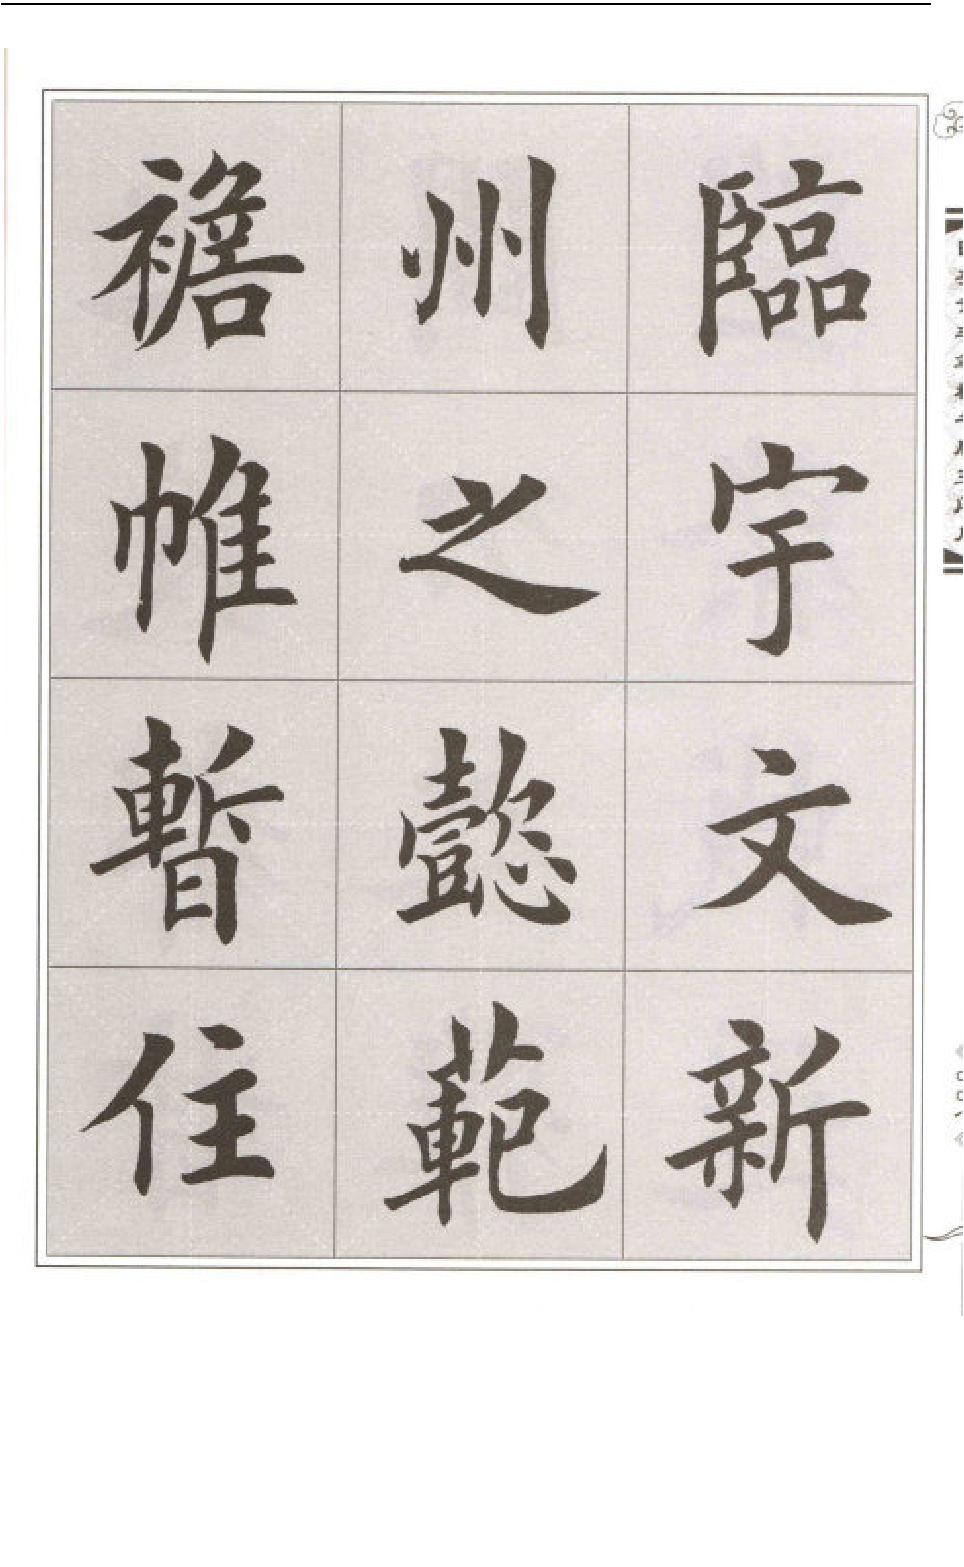 臨宇文新
州之懿範
襜帷暫住